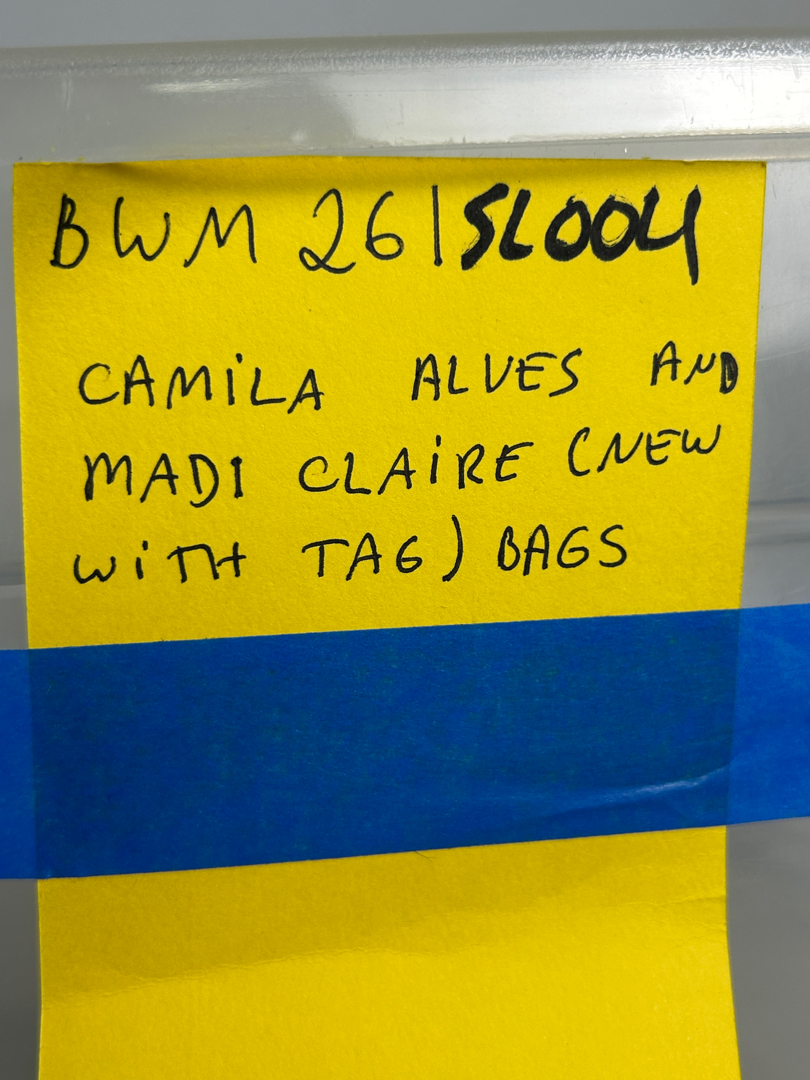 BWM 26|SL004
CAMiLA ALVES AND
MADI CLAiRE (NEW
WiTH TAG) BAGS